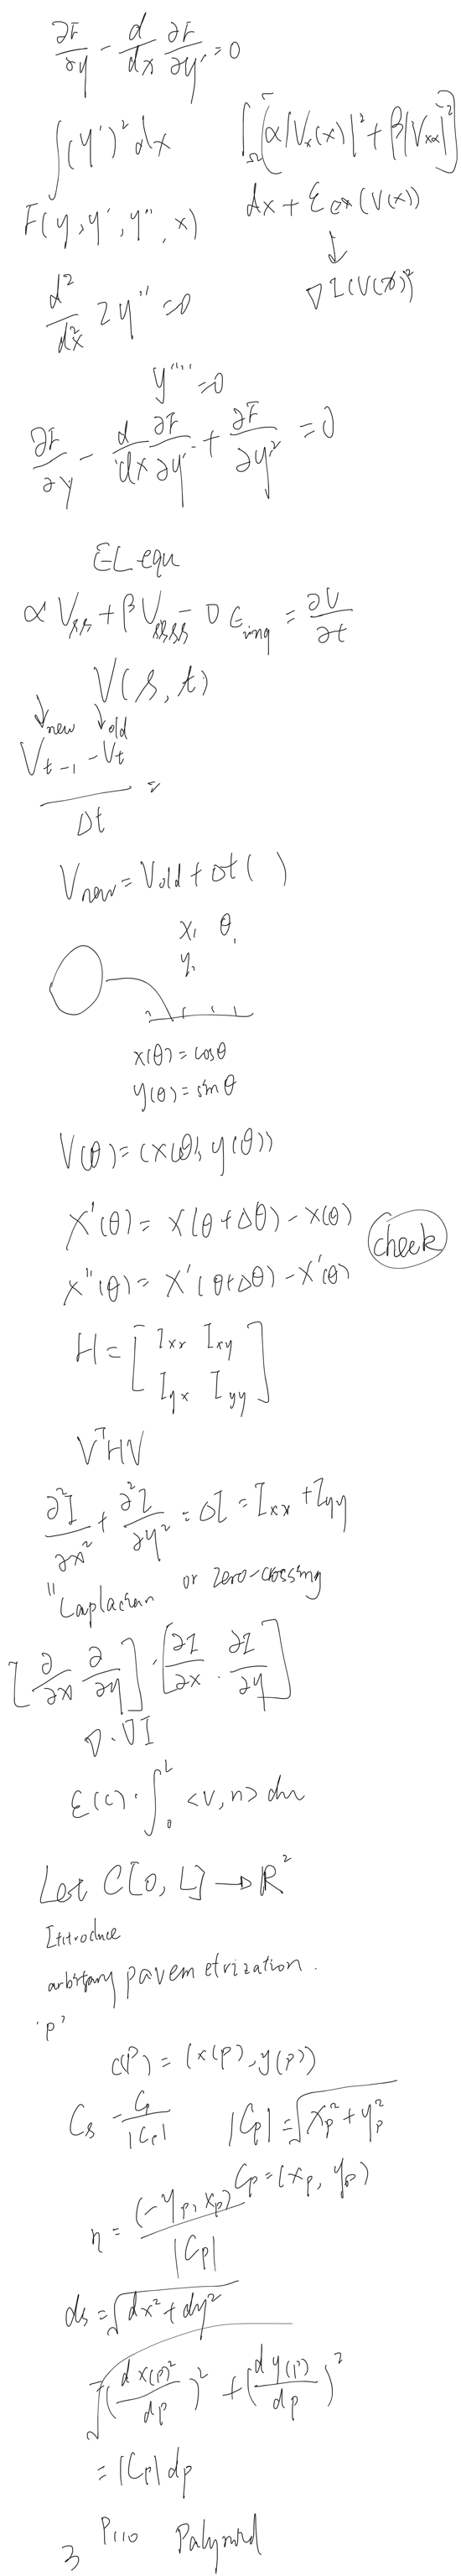 ∂F/∂y - d/dx ∂F/∂y' = 0
∫(y')² dx
∫_Ω [α|Vₓ(x)|² + β|Vₓₓ|²]
F(y, y', y'', x)
dx + ε_ex(V(x))
↓
∇I(V(x))²
d²/dx² 2y'' = 0
y'''' = 0
∂F/∂y - d/dx ∂F/∂y' + ∂F/∂y² = 0
EL equ
α V_ss + β V_ssss - ∇ E_img = ∂V/∂t
V(s, t)
↓new ↓old
V_{t-1} - V_t / Δt =
V_new = V_old + Δt ( )
x₁ θ₁
y₁
x(θ) = cosθ
y(θ) = sinθ
V(θ) = (x(θ), y(θ))
x'(θ) = x(θ+Δθ) - x(θ)
check
x''(θ) = x'(θ+Δθ) - x'(θ)
H = [ I_xx I_xy
I_yx I_yy ]
VᵀHV
∂²I/∂x² + ∂²I/∂y² = ΔI = I_xx + I_yy
"Laplacian or Zero-crossing
[∂/∂x ∂/∂y] · [∂I/∂x · ∂I/∂y]
∇·∇I
E(c) · ∫₀ᴸ <V, n> ds
Let C[0, L] → ℝ²
Introduce
arbitrary parametrization.
'p'
C(p) = (x(p), y(p))
C_s = C_p/|C_p| |C_p| = √(x_p² + y_p²)
C_p = (x_p, y_p)
n = (-y_p, x_p)/|C_p|
ds = √(dx² + dy²)
√((dx(p)²/dp)² + (dy(p²)/dp)²
= |C_p| dp
3 P110